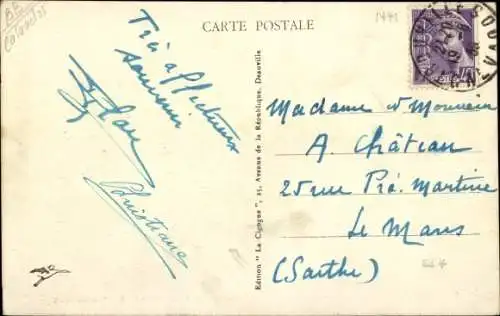 CARTE POSTALE
Très affectueux
souvenir
Christiane
Edition "La Cigogne", 25, Avenue de la République, Deauville
Madame & Monsieur
A. Château
25 rue Pré. Martine
Le Mans
(Sarthe)